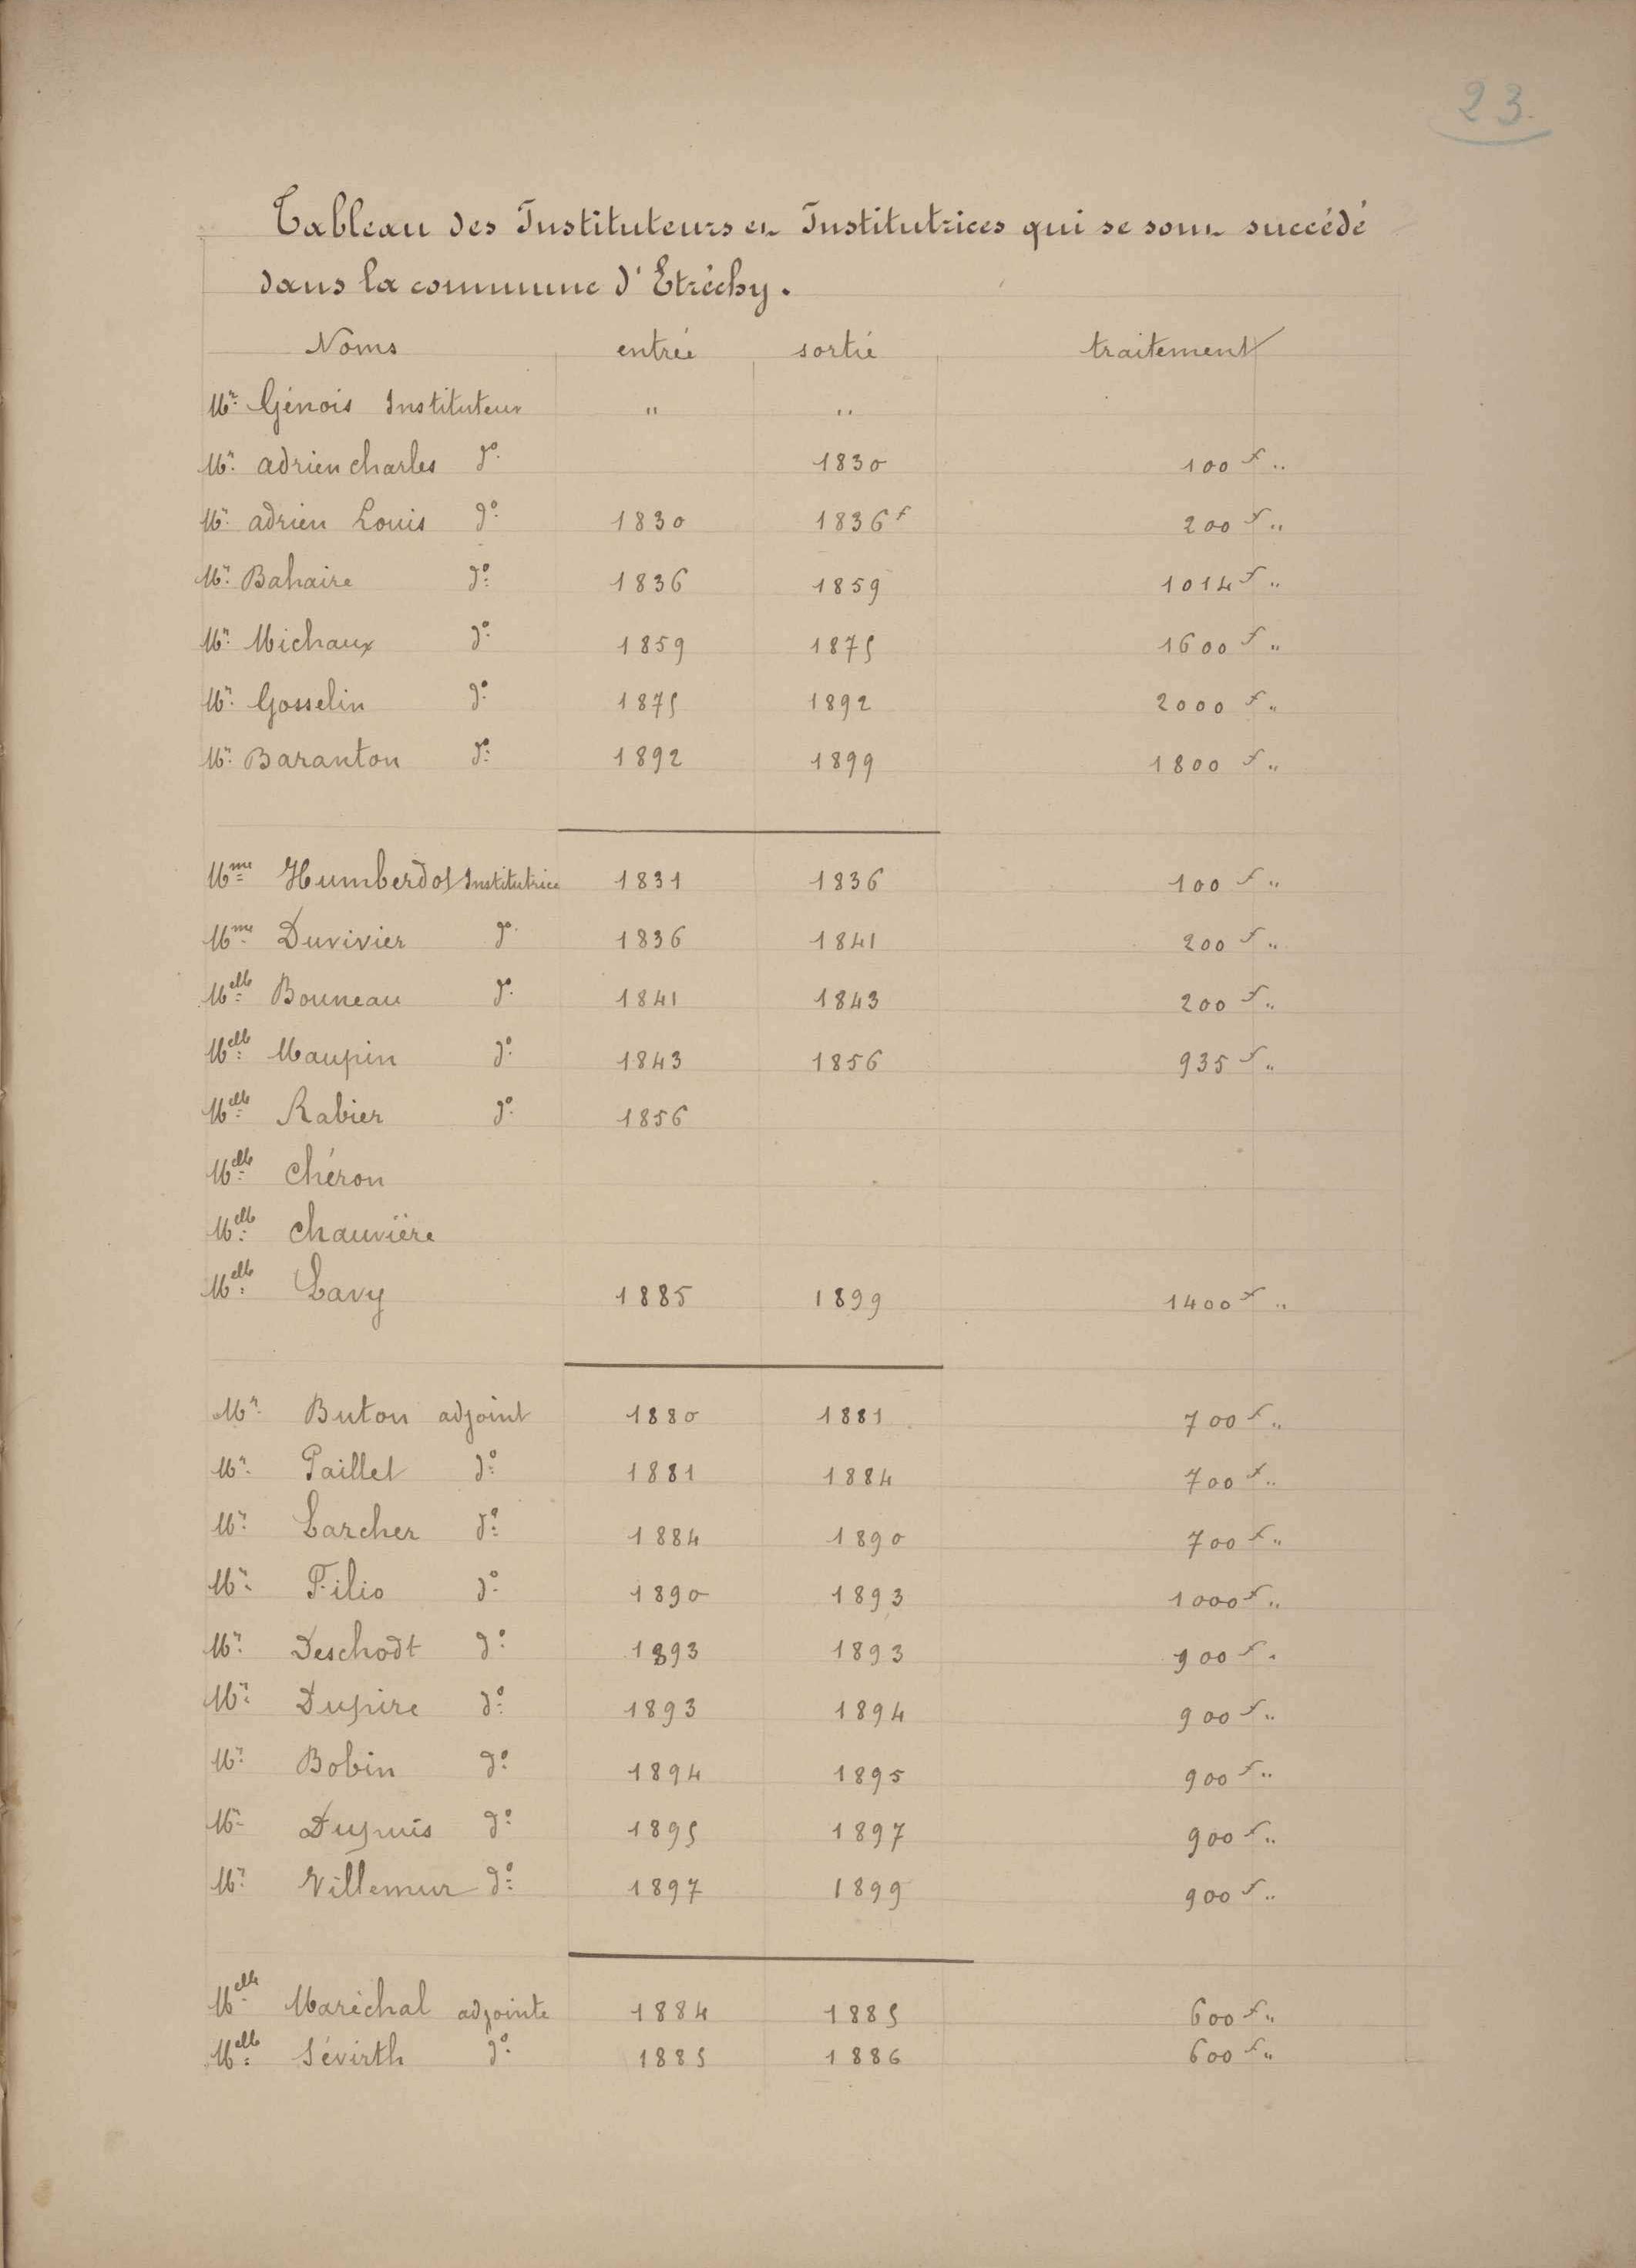 23.
Tableau des Instituteurs et Institutrices qui se sont succédé
dans la commune d'Etréchy.
Noms entrée sortie traitement
Mr. Génois Instituteur " "
Mr. adrien charles do. 1830 100 f "
Mr. adrien Louis do. 1830 1836 f 200 f "
Mr. Bahaire do. 1836 1859 1014 f "
Mr. Michaux do. 1859 1875 1600 f "
Mr. Gosselin do. 1875 1892 2000 f "
Mr. Baranton do. 1892 1899 1800 f "
Mme Humberdot Institutrice 1831 1836 100 f "
Mme Duvivier do. 1836 1841 200 f "
Melle Bouneau do. 1841 1843 200 f "
Melle Maupin do. 1843 1856 935 f "
Melle Rabier do. 1856
Melle Chéron
Melle Chauvière
Melle Lavy 1885 1899 1400 f "
Mr. Buton adjoint 1880 1881 700 f "
Mr. Paillet do. 1881 1884 700 f "
Mr. Larcher do. 1884 1890 700 f "
Mr. Filio do. 1890 1893 1000 f "
Mr. Deschodt do. 1893 1893 900 f "
Mr. Dupire do. 1893 1894 900 f "
Mr. Bobin do. 1894 1895 900 f "
Mr. Dupuis do. 1895 1897 900 f "
Mr. Villemur do. 1897 1899 900 f "
Melle Maréchal adjointe 1884 1885 600 f "
Melle Sévirth do. 1885 1886 600 f "